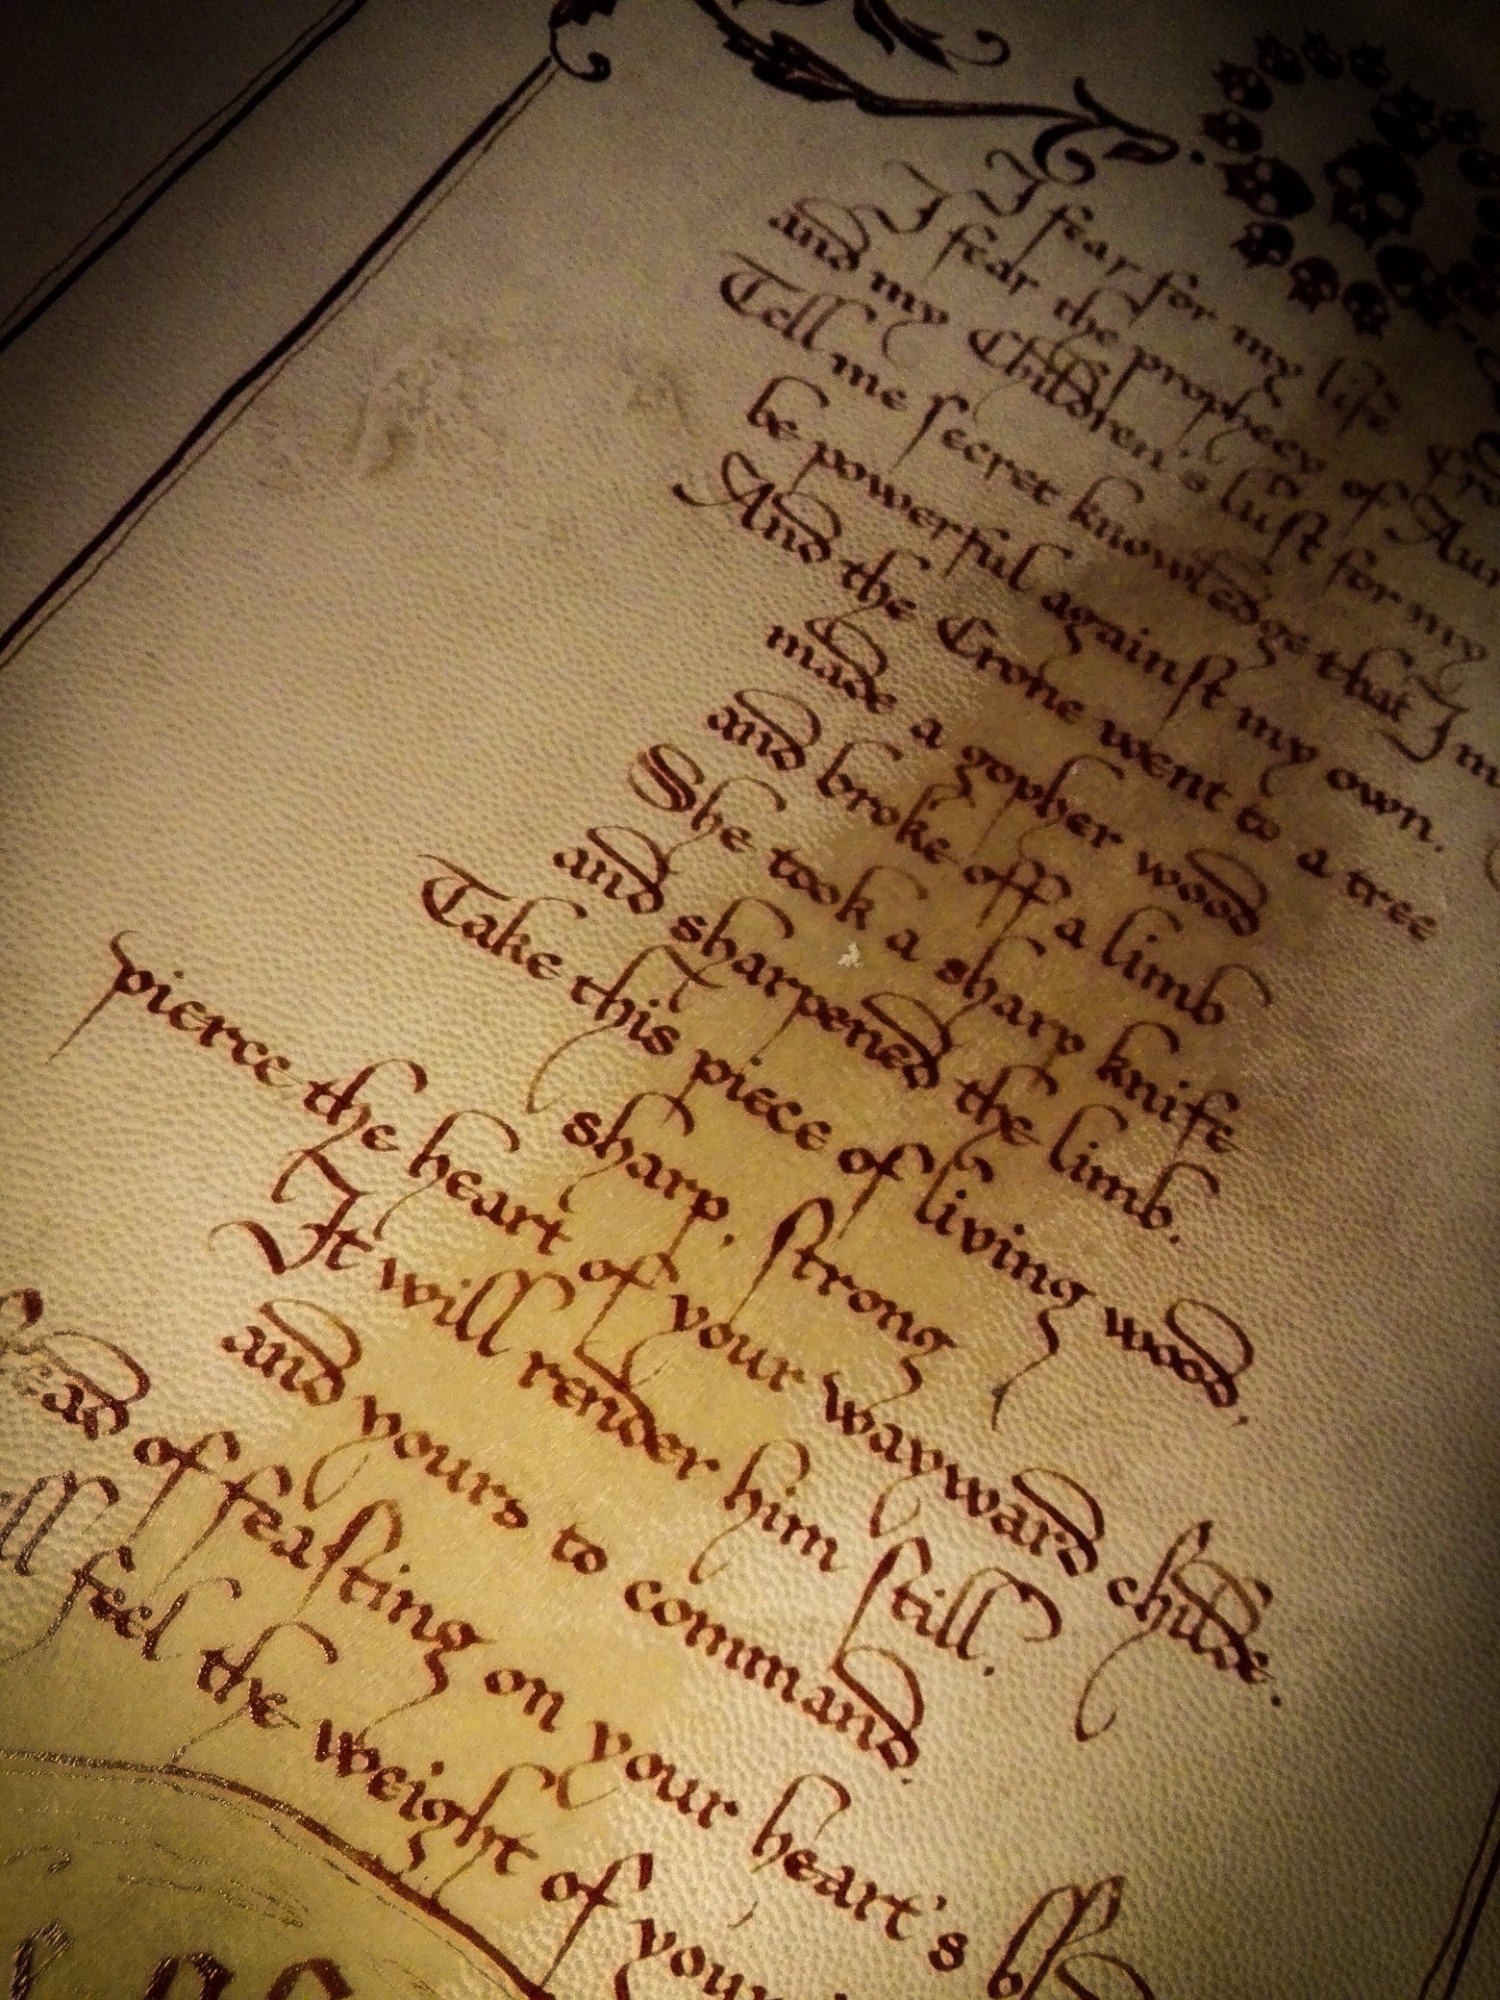 I fear for my life
I fear the prophecy of
and my Children's lust for my
Tell me secret knowledge that I
be powerful against my own.
And the Crone went to a tree
made a gopher wood
and broke off a limb
She took a sharp knife
and sharpened the limb.
Take this piece of living wood,
sharp, strong
pierce the heart of your wayward childe.
It will render him still.
and yours to command.
of feasting on your heart's
feel the weight of